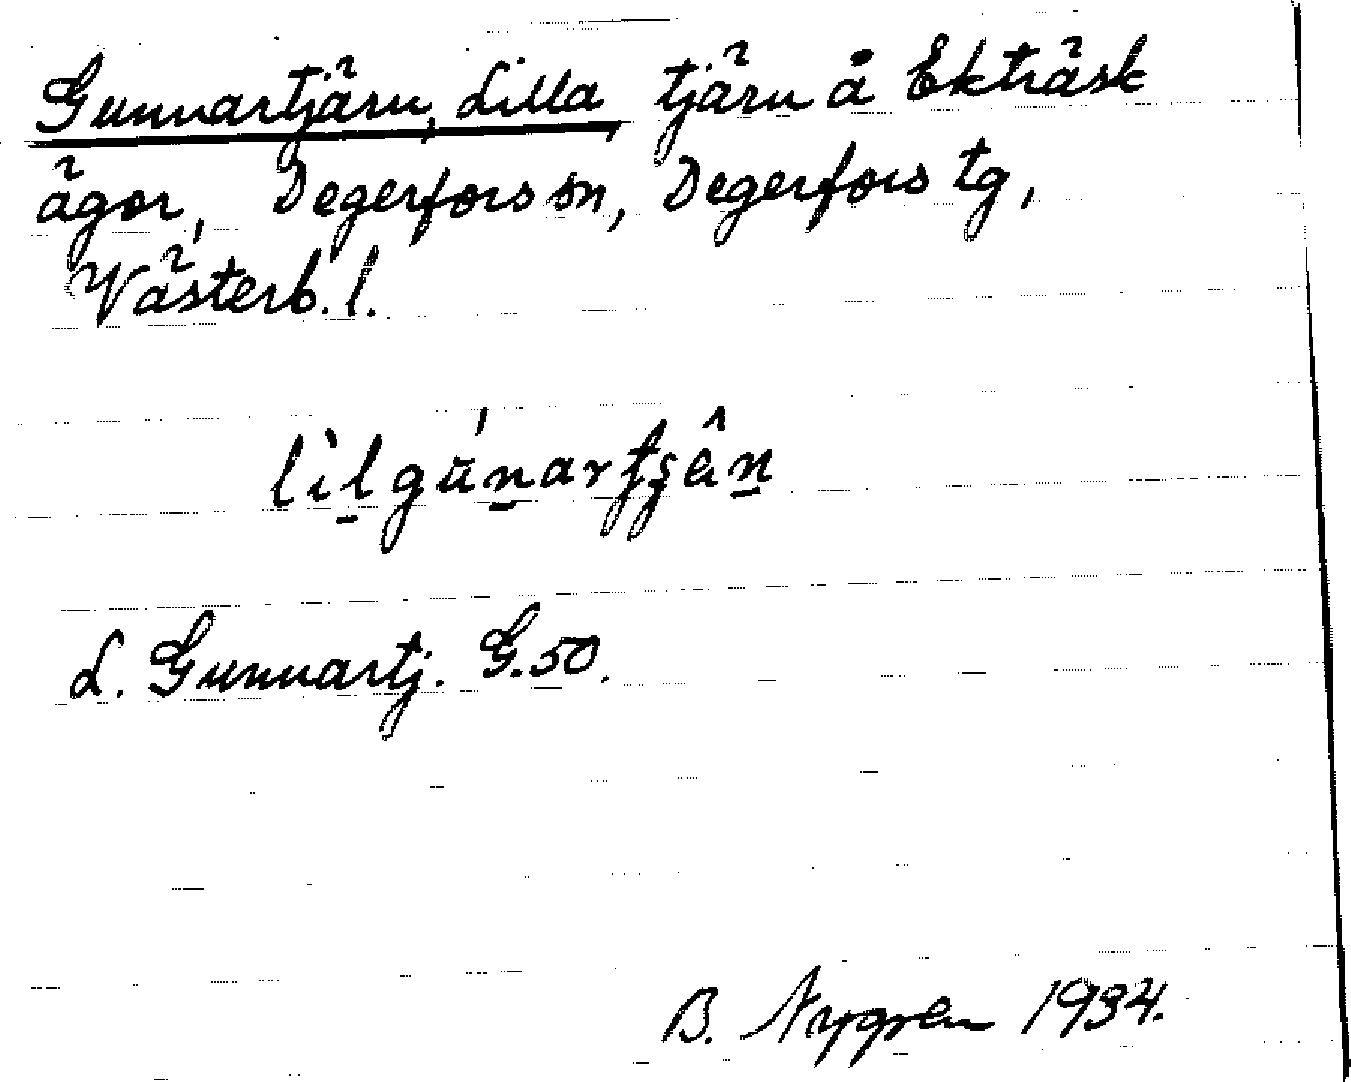 Gunnartjärn, Lilla, tjärn å Ekträsk
ägor, Degerfors sn, Degerfors tg,
Västerb. l.
lìlgúnartʃʂân
L. Gunnartj. G.50.
B. Nygren 1934.